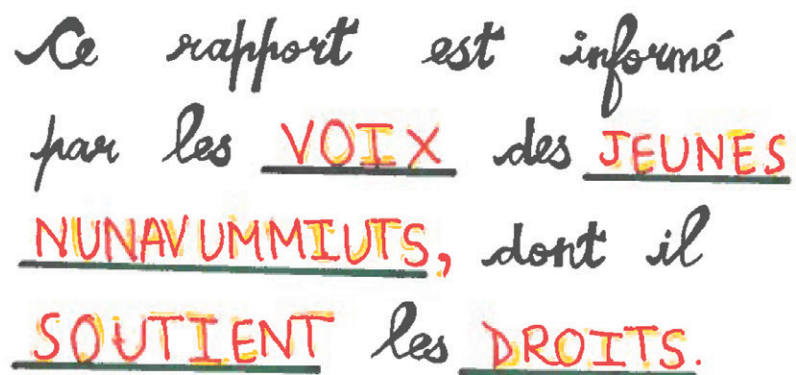 Ce rapport est informé
par les VOIX des JEUNES
NUNAVUMMIUTS, dont il
SOUTIENT les DROITS.